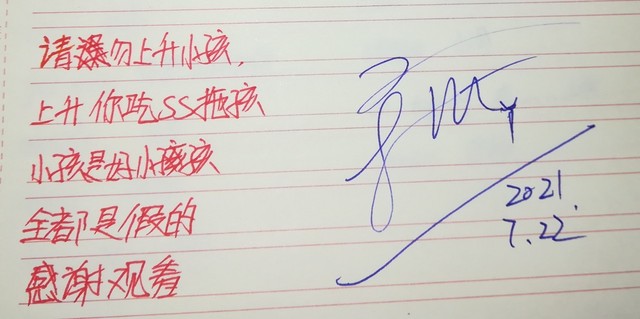 请勿上升小孩，
上升你吃SS拖孩
小孩是好小孩
全都是假的
感谢观看
2021.
7.22